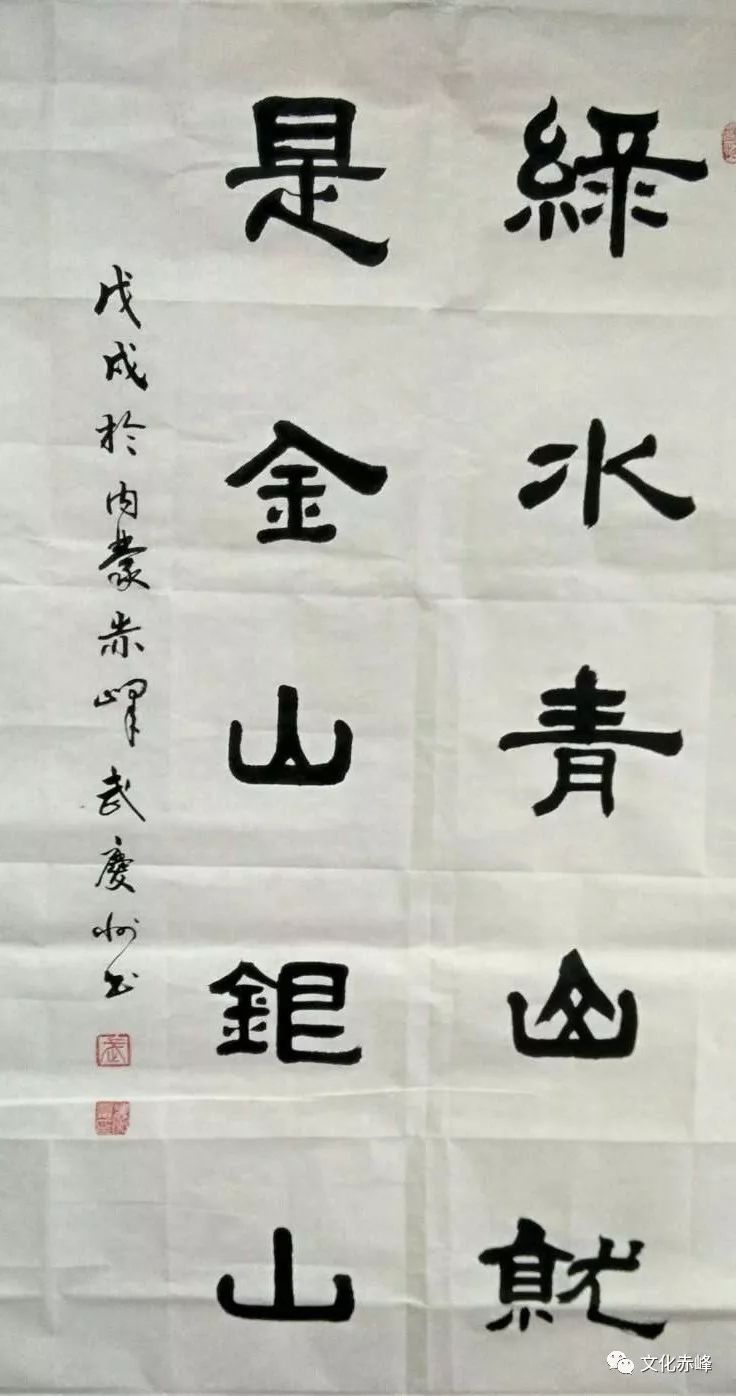 綠水青山就
是金山銀山
戊戌於内蒙赤峰武慶州书
文化赤峰